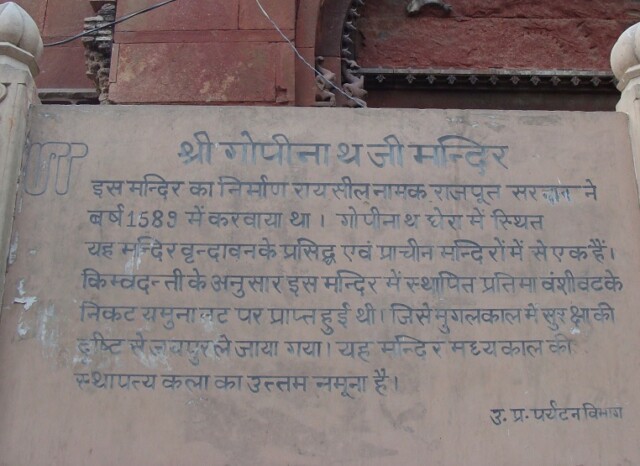 श्री गोपीनाथ जी मन्दिर
इस मन्दिर का निर्माण रायसील नामक राजपूत सरदार ने
बर्ष 1589 में करवाया था। गोपीनाथ घेरा में स्थित
यह मन्दिर वृन्दावन के प्रसिद्ध एवं प्राचीन मन्दिरों में से एक हैं।
किम्वदन्ती के अनुसार इस मन्दिर में स्थापित प्रतिमा वंशीवट के
निकट यमुना तट पर प्राप्त हुई थी। जिसे मुगलकाल में सुरक्षा की
दृष्टि से जयपुर ले जाया गया। यह मन्दिर मध्य काल की
स्थापत्य कला का उत्तम नमूना है।
उ. प्र. पर्यटन विभाग